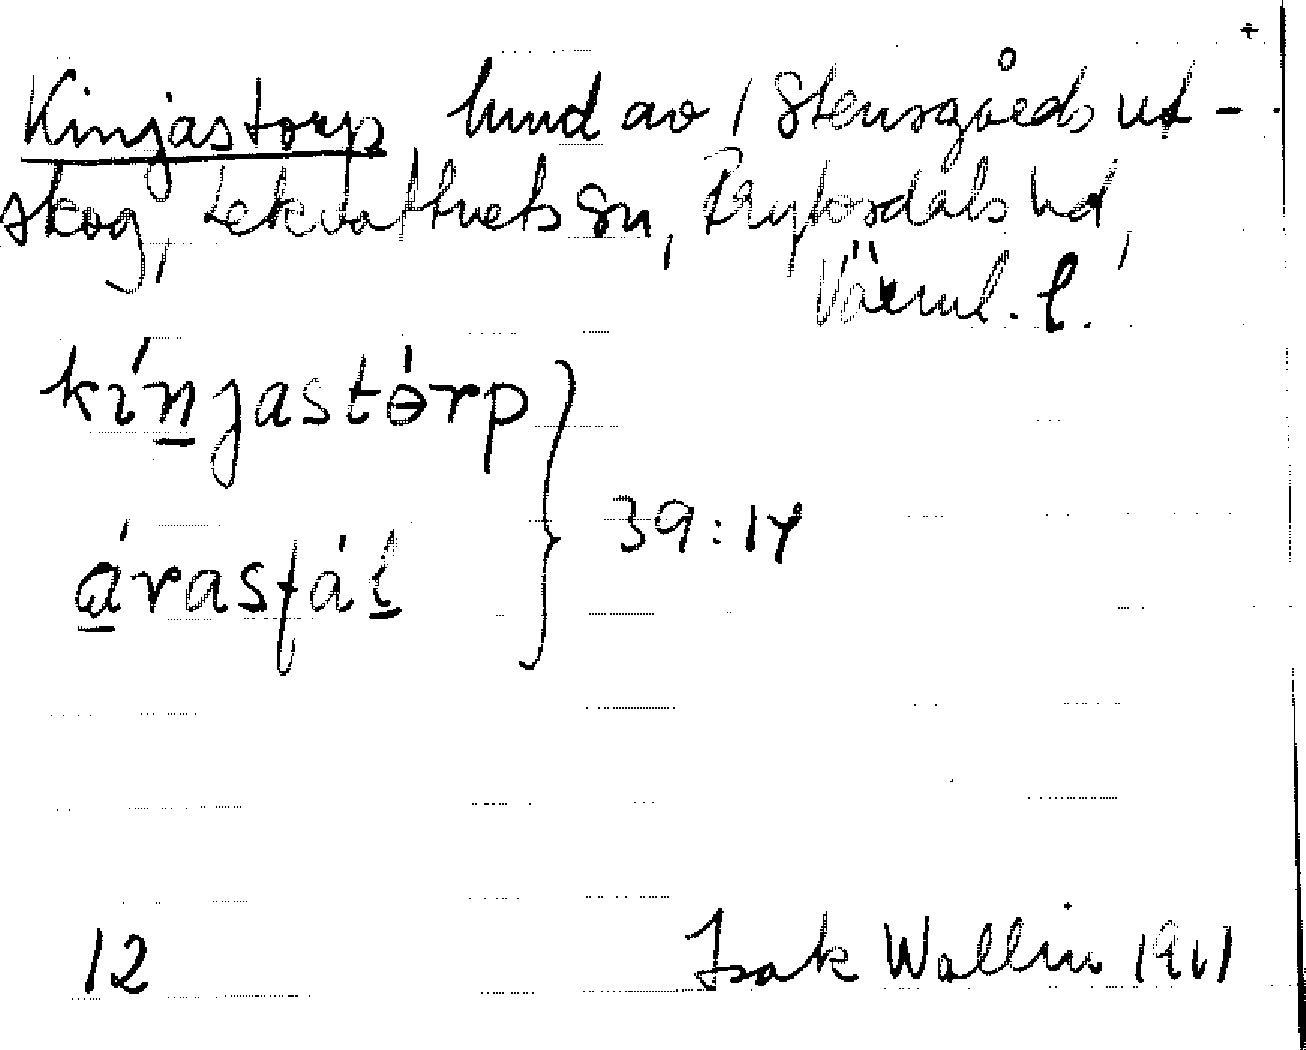 +
Kinjastorp lund av 1 Stensgårds ut-
skog, Lekvattnets sn, Fryksdals hd,
Värml. l.
kínjastórp
árasfál } 39:14
12 Isak Wallin 1911